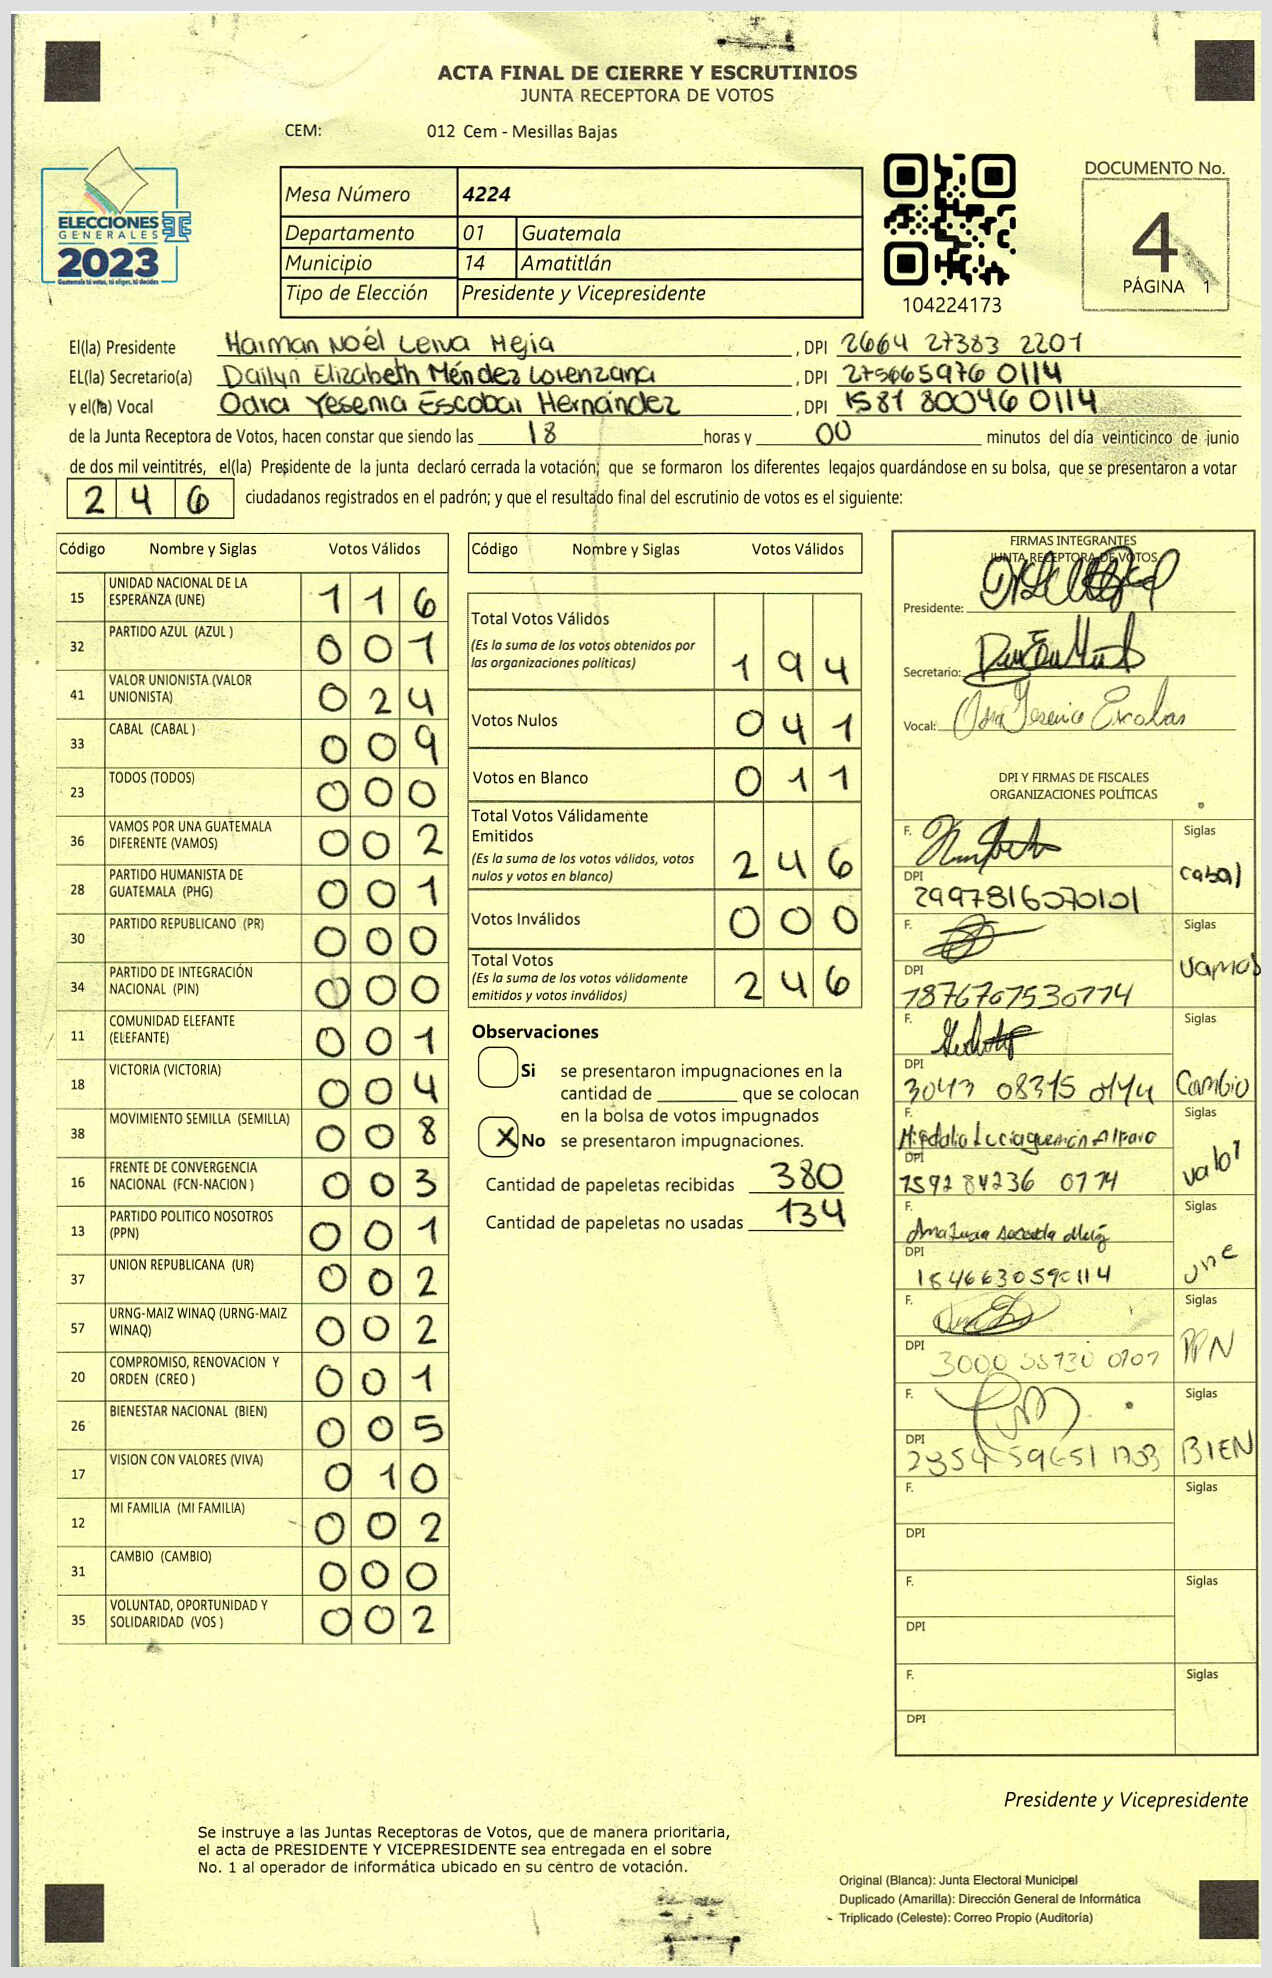 ACTA FINAL DE CIERRE Y ESCRUTINIOS
JUNTA RECEPTORA DE VOTOS
CEM: 012 Cem - Mesillas Bajas
ELECCIONES
GENERALES
2023
Guatemala tú votas, tú eliges, tú decides
Mesa Número 4224
Departamento 01 Guatemala
Municipio 14 Amatitlán
Tipo de Elección Presidente y Vicepresidente
104224173
DOCUMENTO No.
4
PÁGINA 1
El(la) Presidente Haiman Noél Leiva Mejia , DPI 2664 27383 2201
EL(la) Secretario(a) Dailyn Elizabeth Méndez Lorenzana , DPI 275665976 0114
y el(la) Vocal Odra Yesenia Escobar Hernández , DPI 1581 80046 0114
de la Junta Receptora de Votos, hacen constar que siendo las 18 horas y 00 minutos del día veinticinco de junio
de dos mil veintitrés, el(la) Presidente de la junta declaró cerrada la votación; que se formaron los diferentes legajos quardándose en su bolsa, que se presentaron a votar
246 ciudadanos registrados en el padrón; y que el resultado final del escrutinio de votos es el siguiente:
Código Nombre y Siglas Votos Válidos
15 UNIDAD NACIONAL DE LA ESPERANZA (UNE) 116
32 PARTIDO AZUL (AZUL ) 001
41 VALOR UNIONISTA (VALOR UNIONISTA) 024
33 CABAL (CABAL ) 009
23 TODOS (TODOS) 000
36 VAMOS POR UNA GUATEMALA DIFERENTE (VAMOS) 002
28 PARTIDO HUMANISTA DE GUATEMALA (PHG) 001
30 PARTIDO REPUBLICANO (PR) 000
34 PARTIDO DE INTEGRACIÓN NACIONAL (PIN) 000
11 COMUNIDAD ELEFANTE (ELEFANTE) 001
18 VICTORIA (VICTORIA) 004
38 MOVIMIENTO SEMILLA (SEMILLA) 008
16 FRENTE DE CONVERGENCIA NACIONAL (FCN-NACION ) 003
13 PARTIDO POLITICO NOSOTROS (PPN) 001
37 UNION REPUBLICANA (UR) 002
57 URNG-MAIZ WINAQ (URNG-MAIZ WINAQ) 002
20 COMPROMISO, RENOVACION Y ORDEN (CREO ) 001
26 BIENESTAR NACIONAL (BIEN) 005
17 VISION CON VALORES (VIVA) 010
12 MI FAMILIA (MI FAMILIA) 002
31 CAMBIO (CAMBIO) 000
35 VOLUNTAD, OPORTUNIDAD Y SOLIDARIDAD (VOS ) 002
Código Nombre y Siglas Votos Válidos
Total Votos Válidos
(Es la suma de los votos obtenidos por
las organizaciones politicas) 194
Votos Nulos 041
Votos en Blanco 011
Total Votos Válidamente
Emitidos
(Es la suma de los votos válidos, votos
nulos y votos en blanco) 246
Votos Inválidos 000
Total Votos
(Es la suma de los votos válidamente
emitidos y votos inválidos) 246
Observaciones
Si se presentaron impugnaciones en la
cantidad de ________ que se colocan
en la bolsa de votos impugnados
X No se presentaron impugnaciones.
Cantidad de papeletas recibidas 380
Cantidad de papeletas no usadas 134
FIRMAS INTEGRANTES
JUNTA RECEPTORA DE VOTOS
Presidente:
Secretario:
Vocal:
DPI Y FIRMAS DE FISCALES
ORGANIZACIONES POLÍTICAS
F. Siglas cabal
DPI 2997816070101
F. Siglas vamos
DPI 1876707530114
F. Siglas Cambio
DPI 3043 08315 0144
F. Siglas valor
DPI 1592 84236 0114
F. Siglas une
DPI 1546630590114
F. Siglas PPN
DPI 3000
F. Siglas BIEN
DPI 2354 59651
F. Siglas
DPI
F. Siglas
DPI
F. Siglas
DPI
Presidente y Vicepresidente
Se instruye a las Juntas Receptoras de Votos, que de manera prioritaria,
el acta de PRESIDENTE Y VICEPRESIDENTE sea entregada en el sobre
No. 1 al operador de informática ubicado en su centro de votación.
Original (Blanca): Junta Electoral Municipal
Duplicado (Amarilla): Dirección General de Informática
Triplicado (Celeste): Correo Propio (Auditoría)